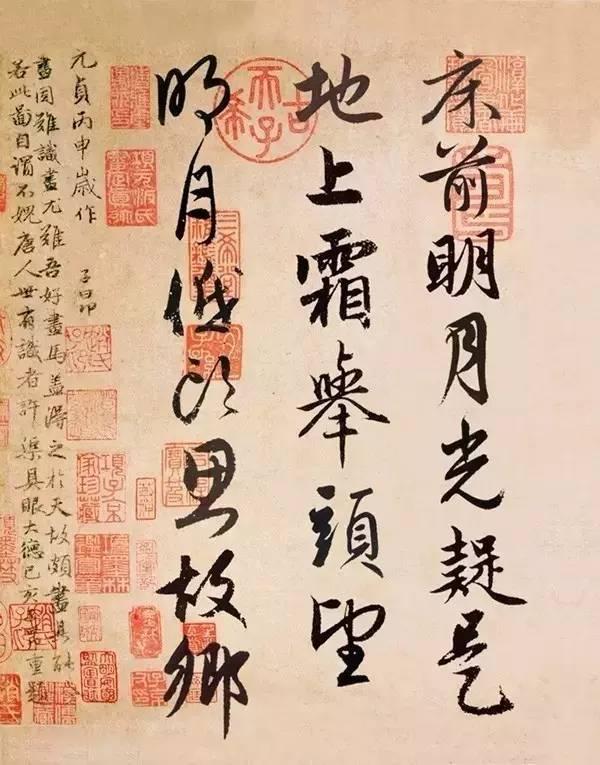 床前明月光疑是
地上霜舉頭望
明月低頭思故鄉
古希天子
元貞丙申歲作 子昂
畫固難識畫尤難吾好畫馬盖得之於天故頗盡其能
若此圖自謂不愧唐人世有識者許渠具眼大德己亥子昂重題
項子京家珍藏